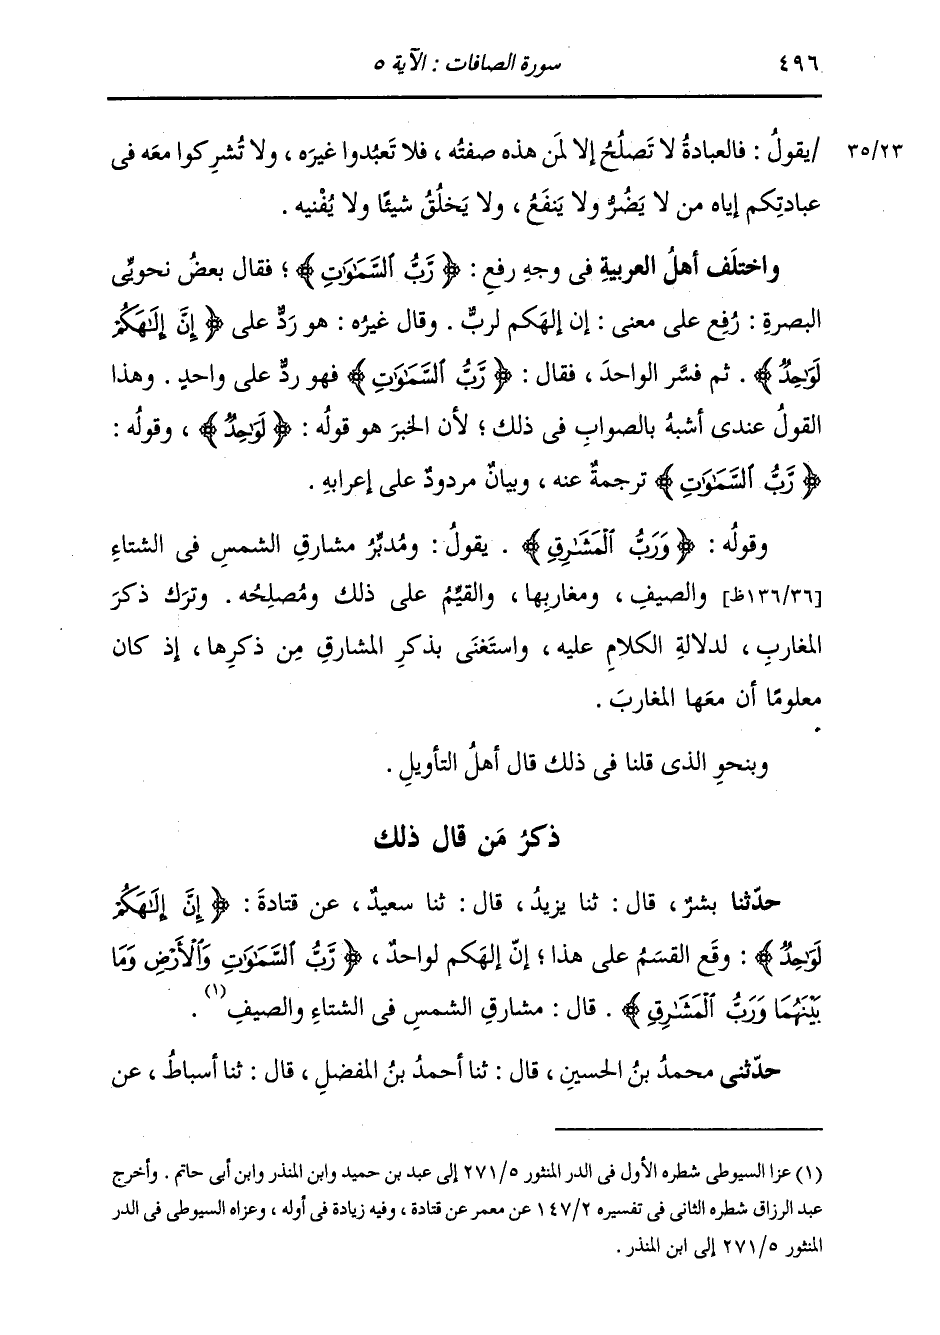 ٤٩٦ سورة الصافات : الآية ٥
٣٥/٢٣ /يقولُ : فالعبادةُ لا تَصلُحُ إلا لمَن هذه صفتُه ، فلا تَعبُدوا غيرَه ، ولا تُشرِكوا معَه فى
عبادتِكم إياه من لا يَضُرُّ ولا يَنفَعُ ، ولا يَخلُقُ شيئًا ولا يُفْنيه .
واختلَف أهلُ العربيةِ فى وجهِ رفعِ : ﴿ رَّبُّ ٱلسَّمَٰوَٰتِ ﴾ ؛ فقال بعضُ نحويِّى
البصرةِ : رُفِع على معنى : إن إلهَكم لربٌّ . وقال غيرُه : هو رَدٌّ على ﴿ إِنَّ إِلَٰهَكُمْ
لَوَٰحِدٌ ﴾ . ثم فسَّر الواحدَ ، فقال : ﴿ رَّبُّ ٱلسَّمَٰوَٰتِ ﴾ فهو ردٌّ على واحدٍ . وهذا
القولُ عندى أشبهُ بالصوابِ فى ذلك ؛ لأن الخبرَ هو قولُه : ﴿ لَوَٰحِدٌ ﴾ ، وقولُه :
﴿ رَّبُّ ٱلسَّمَٰوَٰتِ ﴾ ترجمةٌ عنه ، وبيانٌ مردودٌ على إعرابِهِ .
وقولُه : ﴿ وَرَبُّ ٱلْمَشَٰرِقِ ﴾ . يقولُ : ومُدبِّرُ مشارقِ الشمسِ فى الشتاءِ
[١٣٦/٣٦ظ] والصيفِ ، ومغاربِها ، والقيِّمُ على ذلك ومُصلِحُه . وترَك ذكرَ
المغاربِ ، لدلالةِ الكلامِ عليه ، واستَغنَى بذكرِ المشارقِ مِن ذكرِها ، إذ كان
معلومًا أن معَها المغاربَ .
وبنحوِ الذى قلنا فى ذلك قال أهلُ التأويلِ .
ذكرُ مَن قال ذلك
حدّثنا بشرٌ ، قال : ثنا يزيدُ ، قال : ثنا سعيدٌ ، عن قتادةَ : ﴿ إِنَّ إِلَٰهَكُمْ
لَوَٰحِدٌ ﴾ : وقَع القسَمُ على هذا ؛ إنّ إلهَكم لواحدٌ ، ﴿ رَّبُّ ٱلسَّمَٰوَٰتِ وَٱلْأَرْضِ وَمَا
بَيْنَهُمَا وَرَبُّ ٱلْمَشَٰرِقِ ﴾ . قال : مشارقِ الشمسِ فى الشتاءِ والصيفِ (١) .
حدّثنى محمدُ بنُ الحسينِ ، قال : ثنا أحمدُ بنُ المفضلِ ، قال : ثنا أسباطُ ، عن
(١) عزا السيوطى شطره الأول فى الدر المنثور ٢٧١/٥ إلى عبد بن حميد وابن المنذر وابن أبى حاتم . وأخرج
عبد الرزاق شطره الثانى فى تفسيره ١٤٧/٢ عن معمر عن قتادة ، وفيه زيادة فى أوله ، وعزاه السيوطى فى الدر
المنثور ٢٧١/٥ إلى ابن المنذر .